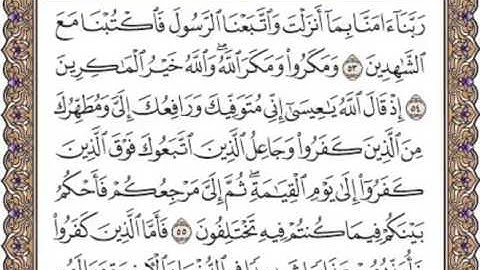 رَبَّنَآ ءَامَنَّا بِمَآ أَنزَلْتَ وَٱتَّبَعْنَا ٱلرَّسُولَ فَٱكْتُبْنَا مَعَ
ٱلشَّٰهِدِينَ ٥٣ وَمَكَرُوا۟ وَمَكَرَ ٱللَّهُ ۖ وَٱللَّهُ خَيْرُ ٱلْمَٰكِرِينَ
٥٤ إِذْ قَالَ ٱللَّهُ يَٰعِيسَىٰٓ إِنِّى مُتَوَفِّيكَ وَرَافِعُكَ إِلَىَّ وَمُطَهِّرُكَ
مِنَ ٱلَّذِينَ كَفَرُوا۟ وَجَاعِلُ ٱلَّذِينَ ٱتَّبَعُوكَ فَوْقَ ٱلَّذِينَ
كَفَرُوٓا۟ إِلَىٰ يَوْمِ ٱلْقِيَٰمَةِ ۖ ثُمَّ إِلَىَّ مَرْجِعُكُمْ فَأَحْكُمُ
بَيْنَكُمْ فِيمَا كُنتُمْ فِيهِ تَخْتَلِفُونَ ٥٥ فَأَمَّا ٱلَّذِينَ كَفَرُوا۟